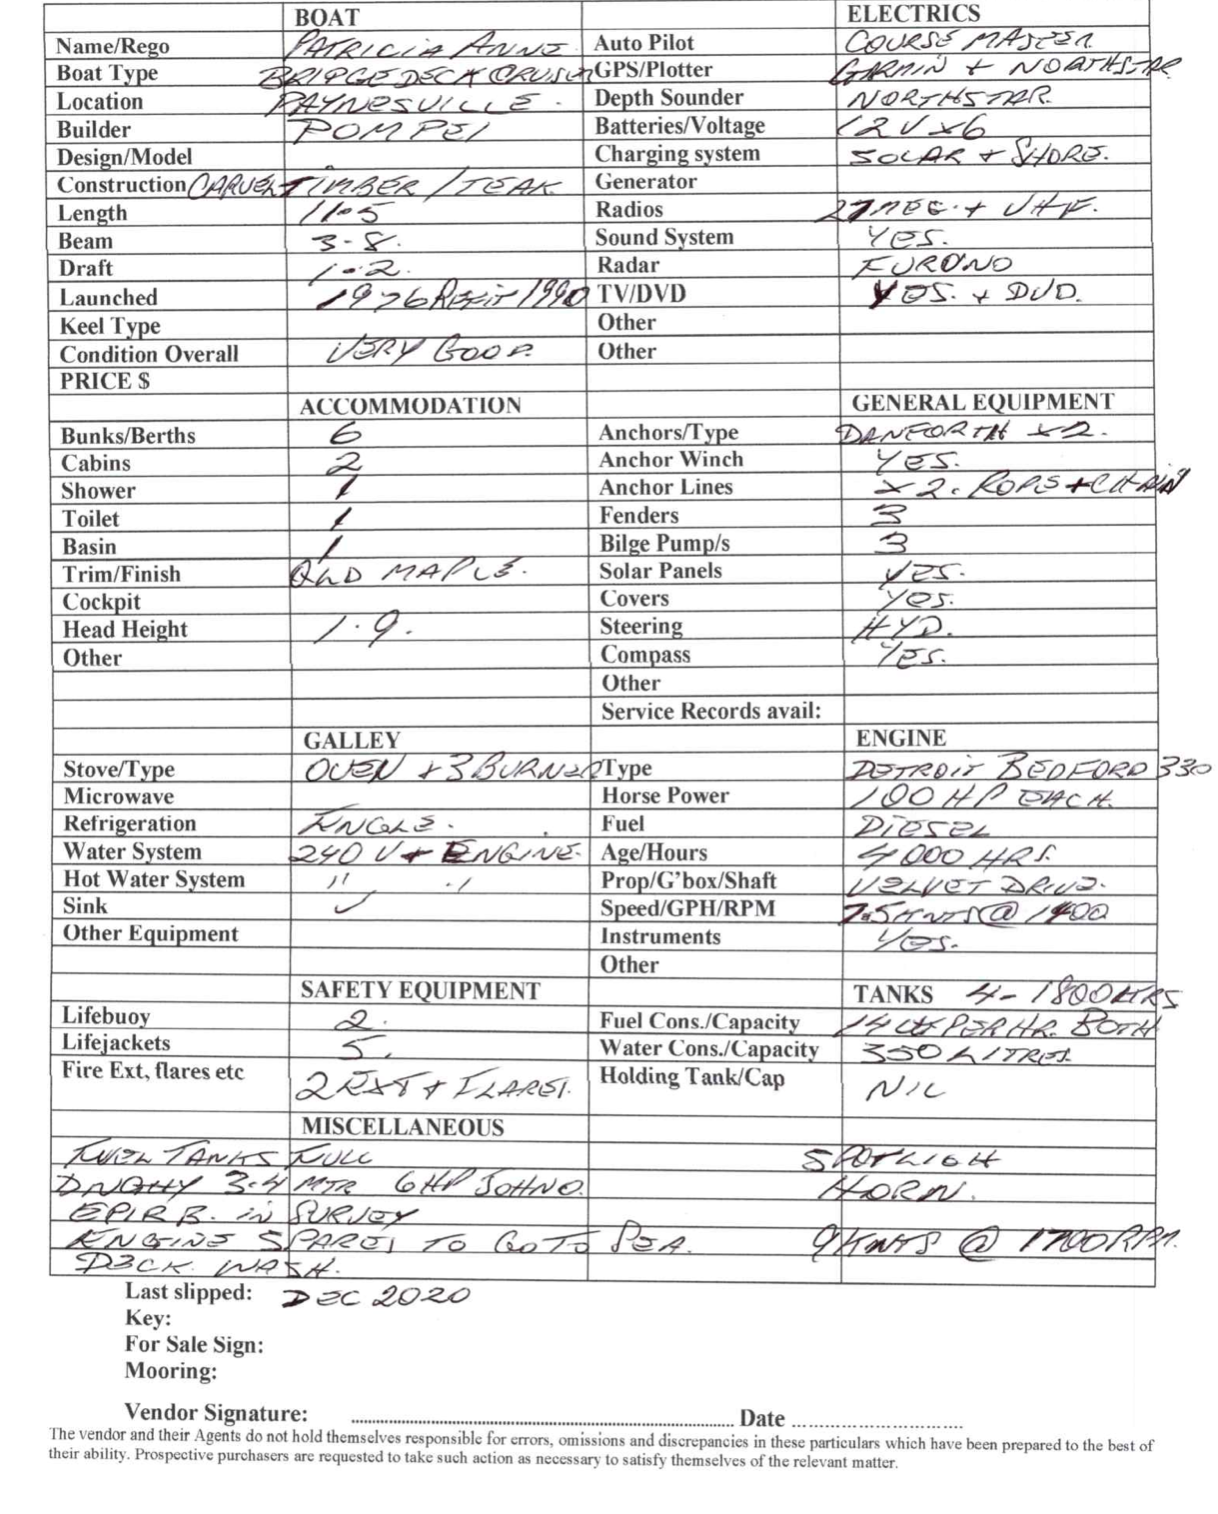 BOAT ELECTRICS
Name/Rego PATRICIA ANNE Auto Pilot COURSE MASTER
Boat Type BRIDGE DECK CRUISER GPS/Plotter GARMIN + NORTHSTAR
Location PAYNESVILLE. Depth Sounder NORTHSTAR
Builder POMPEI Batteries/Voltage 12V x6
Design/Model Charging system SOLAR + SHORE.
Construction CARVEL TIMBER / TEAK Generator
Length 11-5 Radios 27MEG. + VHF.
Beam 3-8. Sound System YES.
Draft 1-2. Radar FURUNO
Launched 1976 Refit 1990 TV/DVD YES. + DVD.
Keel Type Other
Condition Overall VERY GOOD. Other
PRICE $
ACCOMMODATION GENERAL EQUIPMENT
Bunks/Berths 6 Anchors/Type DANFORTH x2.
Cabins 2 Anchor Winch YES.
Shower 1 Anchor Lines x2. ROPE + CHAIN
Toilet 1 Fenders 3
Basin 1 Bilge Pump/s 3
Trim/Finish QLD MAPLE. Solar Panels YES.
Cockpit Covers YES.
Head Height 1.9. Steering HYD.
Other Compass YES.
Other
Service Records avail:
GALLEY ENGINE
Stove/Type OVEN + 3 BURNER Type DETROIT BEDFORD 330
Microwave Horse Power 100 HP EACH.
Refrigeration ENGLE. Fuel DIESEL
Water System 240 V + ENGINE. Age/Hours 4000 HRS.
Hot Water System " " Prop/G'box/Shaft VELVET DRIVE.
Sink ✓ Speed/GPH/RPM 7.5 KNTS @ 1400
Other Equipment Instruments YES.
Other
SAFETY EQUIPMENT TANKS 4- 1800 LTRS
Lifebuoy 2. Fuel Cons./Capacity 14 LT PER HR. BOTH
Lifejackets 5. Water Cons./Capacity 350 LITRES.
Fire Ext, flares etc 2 EXT + FLARES. Holding Tank/Cap NIL
MISCELLANEOUS
FUEL TANKS FULL SPOTLIGH
DNGHY 3.4 MTR 6HP JOHNO. HORN.
EPIRB. IN SURVEY
ENGINE SPARES TO GO TO SEA. 9 KNTS @ 1700 RPM.
DECK WASH.
Last slipped: DEC 2020
Key:
For Sale Sign:
Mooring:
Vendor Signature: Date
The vendor and their Agents do not hold themselves responsible for errors, omissions and discrepancies in these particulars which have been prepared to the best of
their ability. Prospective purchasers are requested to take such action as necessary to satisfy themselves of the relevant matter.